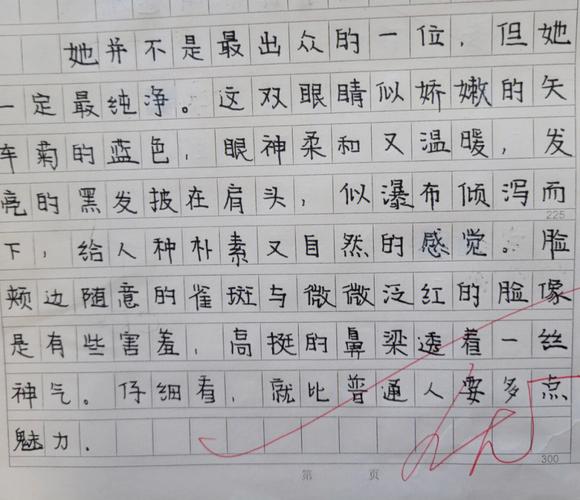 她并不是最出众的一位，但她
一定最纯净。这双眼睛似娇嫩的矢
车菊的蓝色，眼神柔和又温暖，发
亮的黑发披在肩头，似瀑布倾泻而
225
下，给人种朴素又自然的感觉。脸
颊边随意的雀斑与微微泛红的脸像
是有些害羞，高挺的鼻梁透着一丝
神气。仔细看，就比普通人要多点
魅力.
300
第 页